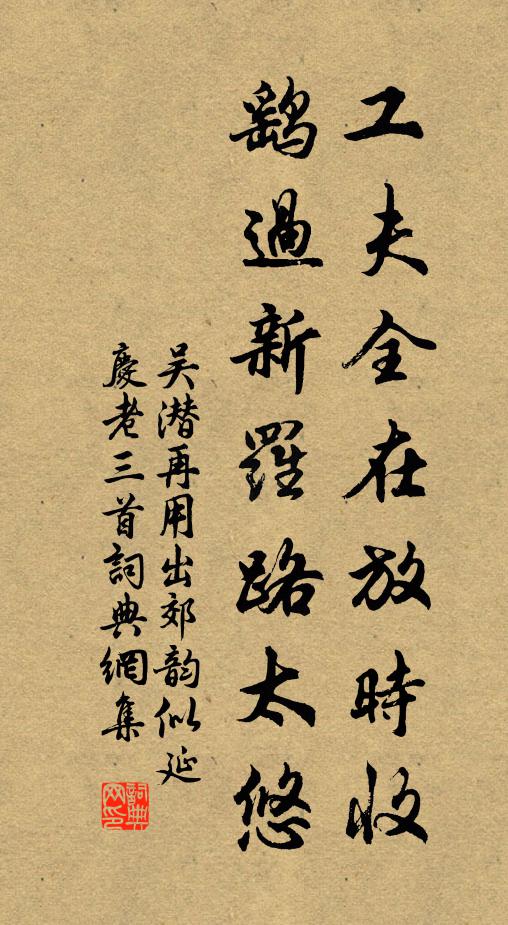 工夫全在放時收
鷂過新羅路太悠
吴潛再用出郊韵似延
慶老三首詞典網集
詞典网印